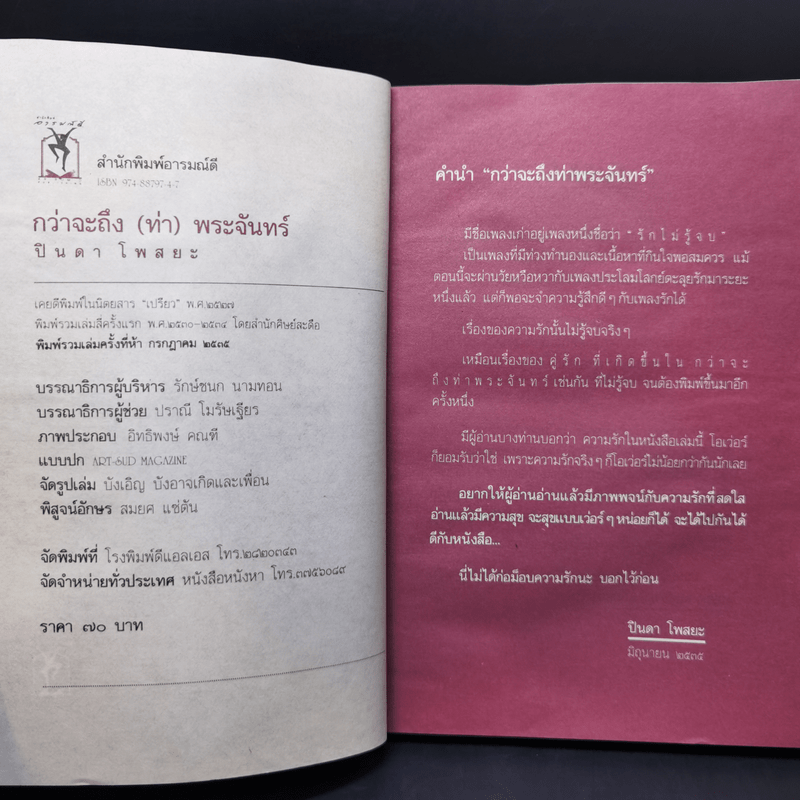 อารมณ์ดี
สำนักพิมพ์อารมณ์ดี
ISBN 974-88797-4-7
กว่าจะถึง (ท่า) พระจันทร์
ปินดา โพสยะ
เคยตีพิมพ์ในนิตยสาร "เปรียว" พ.ศ.๒๕๒๗
พิมพ์รวมเล่มสี่ครั้งแรก พ.ศ.๒๕๓๐-๒๕๓๔ โดยสำนักศิษย์สะดือ
พิมพ์รวมเล่มครั้งที่ห้า กรกฎาคม ๒๕๓๕
บรรณาธิการผู้บริหาร รักษ์ชนก นามทอน
บรรณาธิการผู้ช่วย ปราณี โมรัษเฐียร
ภาพประกอบ อิทธิพงษ์ คณฑี
แบบปก ART-SUD MAGAZINE
จัดรูปเล่ม บังเอิญ บังอาจเกิดและเพื่อน
พิสูจน์อักษร สมยศ แซ่ตัน
จัดพิมพ์ที่ โรงพิมพ์ดีแอลเอส โทร.๒๘๒๐๓๔๓
จัดจำหน่ายทั่วประเทศ หนังสือหนังหา โทร.๓๗๕๖๐๘๙
ราคา ๗๐ บาท
คำนำ "กว่าจะถึงท่าพระจันทร์"
มีชื่อเพลงเก่าอยู่เพลงหนึ่งชื่อว่า "รักไม่รู้จบ"
เป็นเพลงที่มีท่วงทำนองและเนื้อหาที่กินใจพอสมควร แม้
ตอนนี้จะผ่านวัยหวือหวากับเพลงประโลมโสกย์ตะลุยรักมาระยะ
หนึ่งแล้ว แต่ก็พอจะจำความรู้สึกดีๆกับเพลงรักได้
เรื่องของความรักนั้นไม่รู้จบจริงๆ
เหมือนเรื่องของ คู่รัก ที่เกิดขึ้นใน กว่าจะ
ถึงท่าพระจันทร์ เช่นกัน ที่ไม่รู้จบ จนต้องพิมพ์ขึ้นมาอีก
ครั้งหนึ่ง
มีผู้อ่านบางท่านบอกว่า ความรักในหนังสือเล่มนี้ โอเว่อร์
ก็ยอมรับว่าใช่ เพราะความรักจริงๆก็โอเว่อร์ไม่น้อยกว่ากันนักเลย
อยากให้ผู้อ่านอ่านแล้วมีภาพพจน์กับความรักที่สดใส
อ่านแล้วมีความสุข จะสุขแบบเว่อร์ๆหน่อยก็ได้ จะได้ไปกันได้
ดีกับหนังสือ...
นี่ไม่ได้ก่อม็อบความรักนะ บอกไว้ก่อน
ปินดา โพสยะ
มิถุนายน ๒๕๓๕